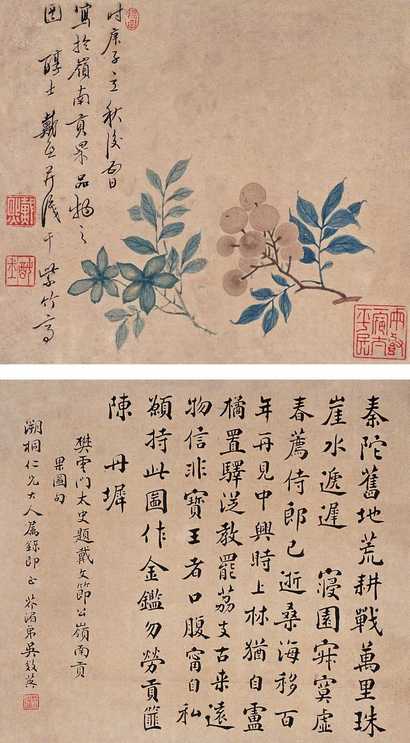 时庚子立秋後日
寫於嶺南貢果品物之
图 醇士戴熙并識于紫竹高
秦陀舊地荒耕戰萬里珠
崖水遞遲 寢園寂寞虛
春薦侍郎已逝桑海移百
年再見中興時上林猶自盧
橘置驛從教罷荔支古来遠
物信非寶王者口腹甯自私
願持此圖作金鑑勿勞貢篚
陳丹墀
樊雲門太史題戴文節公嶺南貢
果圖句
溯桐仁兄大人屬錄即正 弟吳